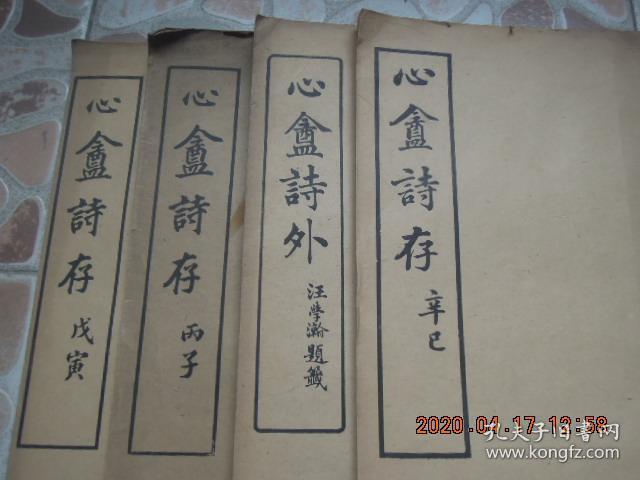 心盦詩存 辛巳
心盦詩外 汪學瀚題籤
心盦詩存 丙子
心盦詩存 戊寅
2020.04.17 13:58
孔夫子旧书网
kongfz.com